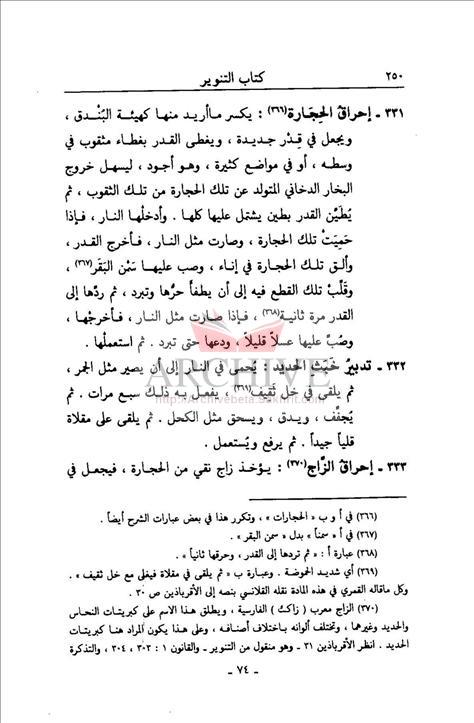 ٢٥٠ كتاب التنوير
٣٣١ ـ إحراق الحِجَارة(٣٦٦) : يكسر ماأريد منها كهيئة البُنْدق ،
ويجعل في قِدْر جديدة ، ويغطى القدر بغطاء مثقوب في
وسطه ، أو في مواضع كثيرة ، وهو أجود ، ليسهل خروج
البخار الدخاني المتولد عن تلك الحجارة من تلك الثقوب ، ثم
يُطيَّن القدر بطين يشتمل عليها كلها . وأدخلْها النار ، فإذا
حَمِيَتْ تلك الحجارة ، وصارت مثل النار ، فأخرج القدر ،
وألق تلك الحجارة في إناء ، وصب عليها سَمْن البَقَر(٣٦٧) ،
وقلِّبْ تلك القطع فيه إلى أن يطفأ حرُّها وتبرد ، ثم ردّها إلى
القدر مرة ثانية(٣٦٨) ، فإذا صارت مثل النار ، فأخرجْها ،
وصُبَّ عليها عسلاً قليلاً ، ودعها حتى تبرد . ثم استعملْها .
٣٣٢ ـ تدبيرُ خَبَث الحديد : يُحمى في النار إلى أن يصير مثل الجمر ،
ثم يلقى في خل ثَقيف(٣٦٩) ، يفعل به ذلك سبع مرات . ثم
يُجفّف ، ويدق ، ويسحق مثل الكحل . ثم يلقى على مقلاة
قلياً جيداً . ثم يرفع ويُستعمل .
٣٣٣ ـ إحراق الزّاج(٣٧٠) : يؤخذ زاج نقي من الحجارة ، فيجعل في
(٣٦٦) في أ و ب « الحجارات » ، وتكرر هذا في بعض عبارات الشرح أيضاً .
(٣٦٧) في أ « سمناً » بدل « سمن البقر » .
(٣٦٨) عبارة أ : « ثم تردها إلى القدر ، وحرقها ثانياً » .
(٣٦٩) أي شديد الحموضة . وعبارة ب « ثم يلقى في مقلاة فيغلى مع خل ثقيف » .
وكل ماقاله القمري في هذه المادة نقله القلانسي بنصه إلى الأقرباذين ص ٣٠ .
(٣٧٠) الزاج معرب ( زاكْ ) الفارسية ، ويطلق هذا الاسم على كبريتات النحاس
والحديد وغيرهما ، وتختلف ألوانه باختلاف أصنافه ، وعلى هذا يكون المراد هنا كبريتات
الحديد . انظر الأقرباذين ٣١ ـ وهو منقول من التنوير ـ والقانون ١ : ٣٠٣ ، ٣٠٤ ، والتذكرة
ـ ٧٤ ـ
ARCHIVE
http://Archivebeta.Sakhrit.com